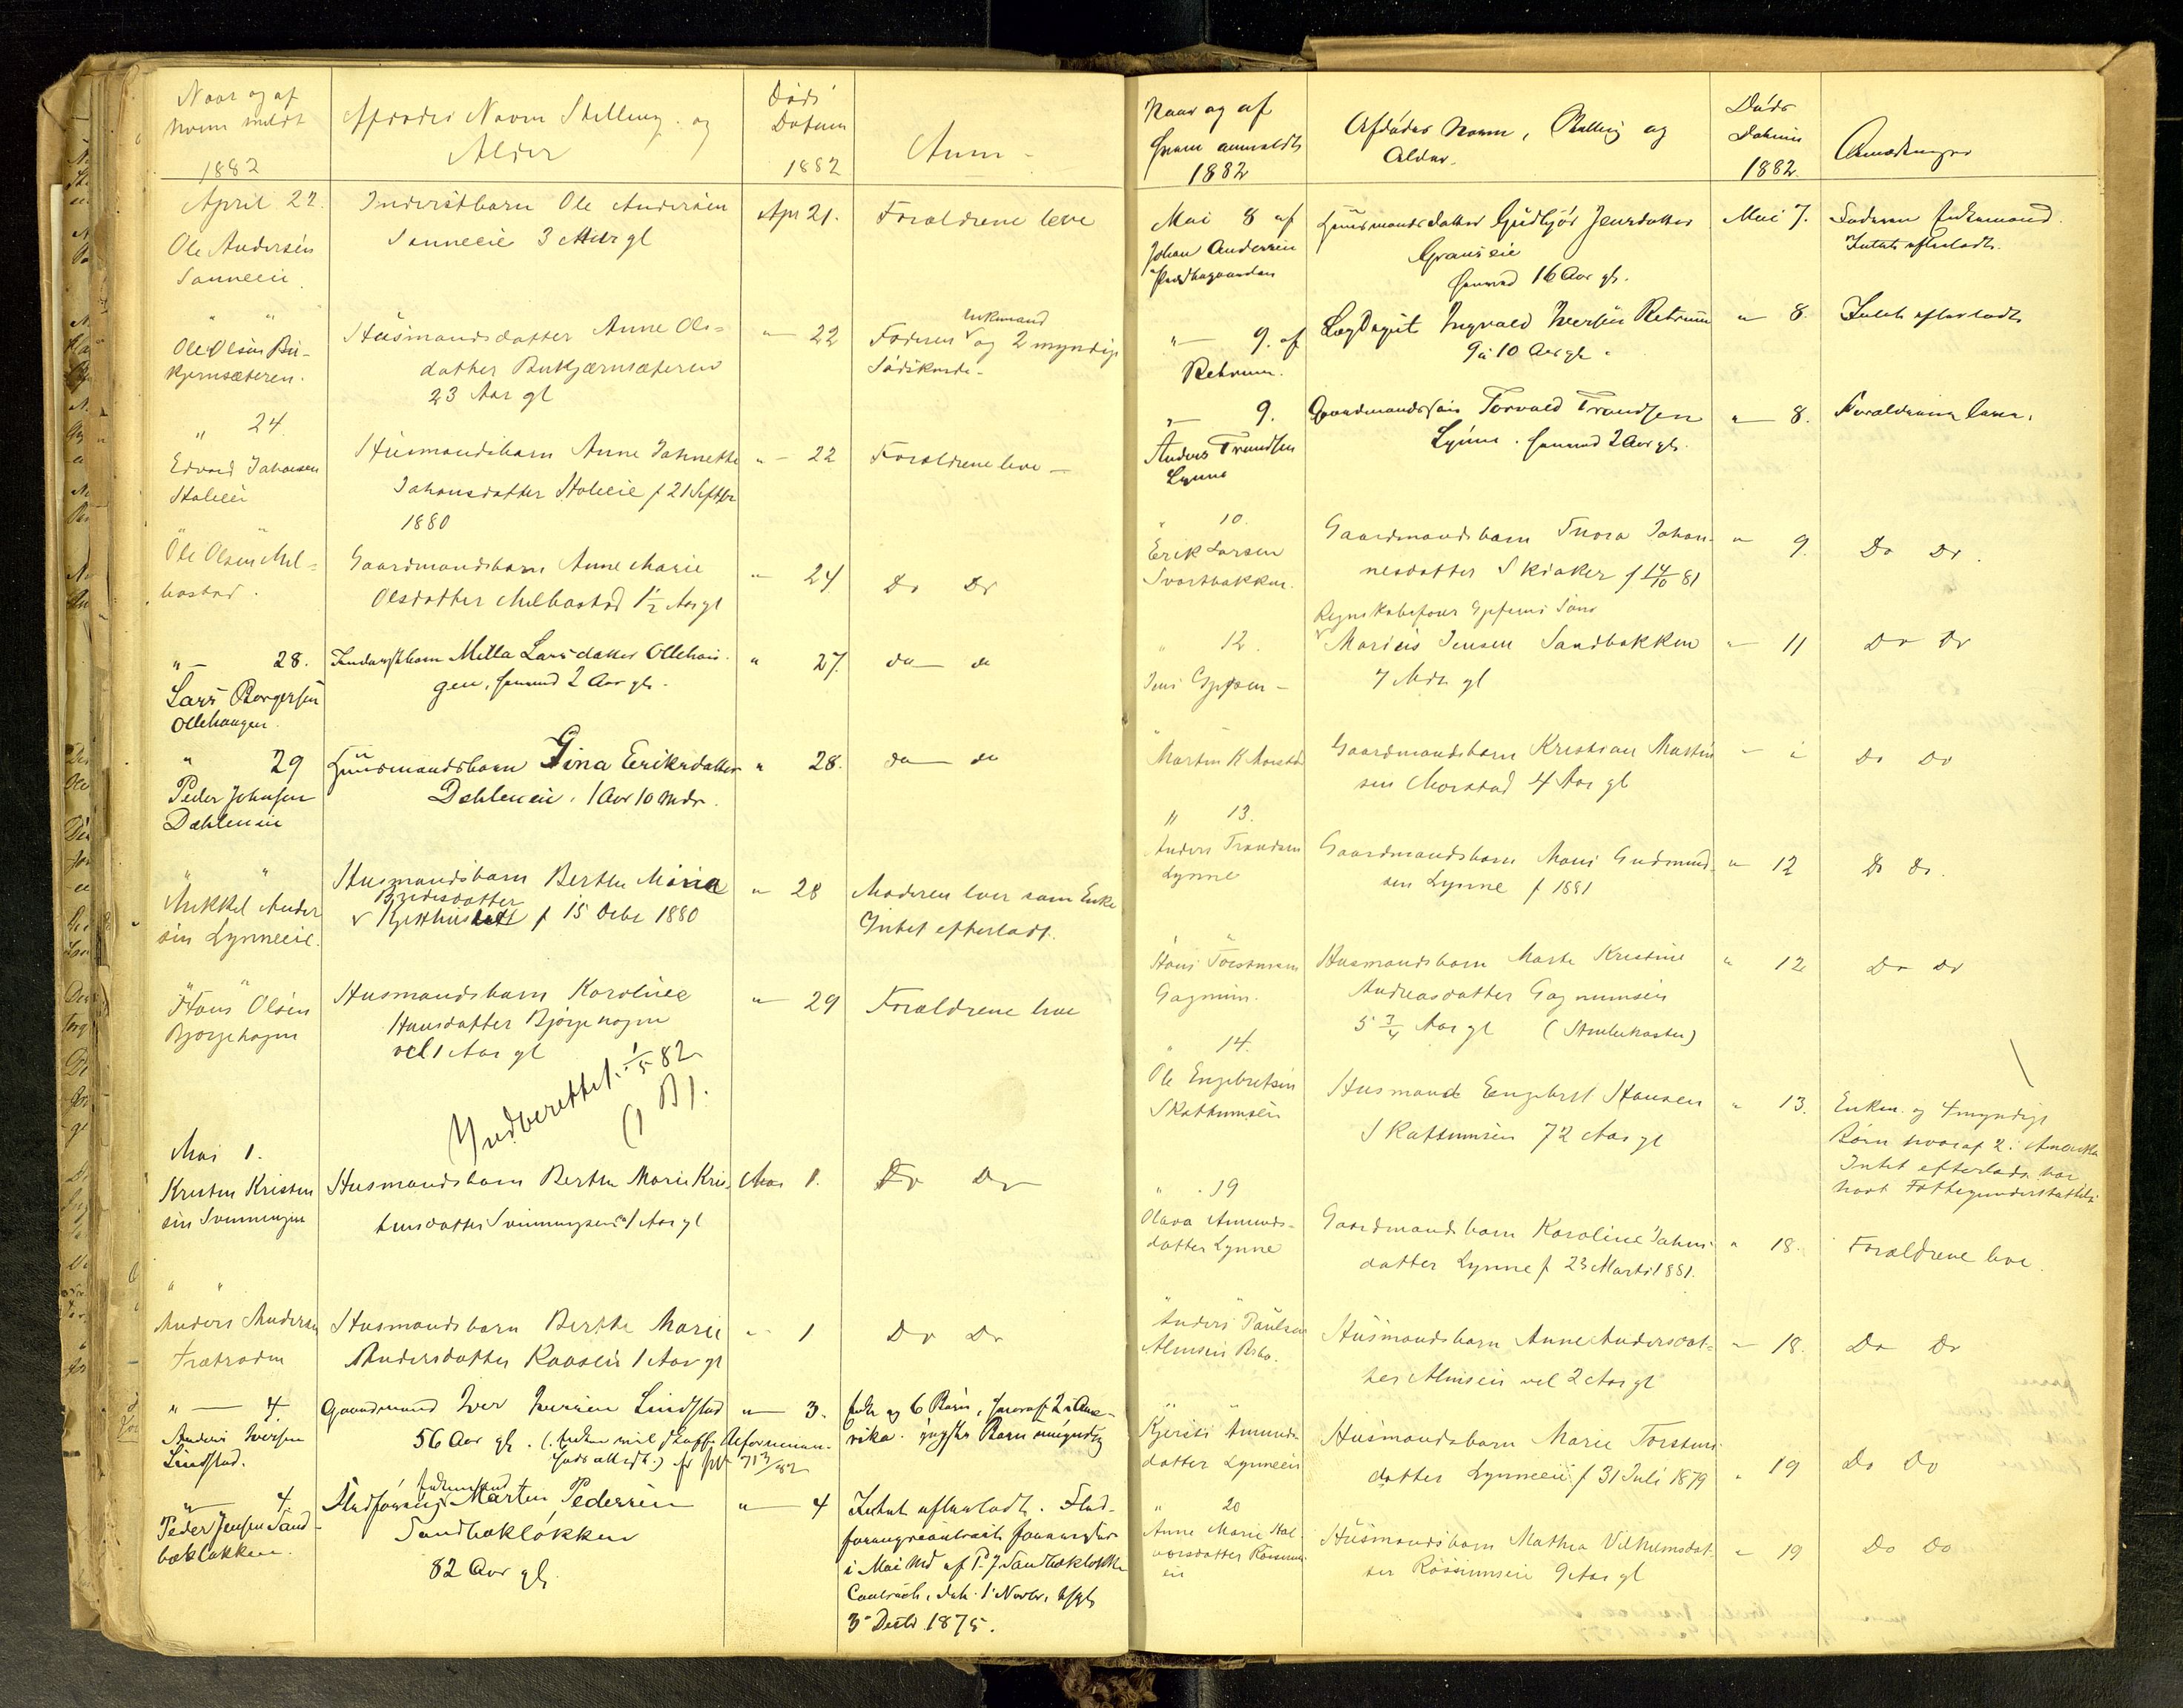 Naar og af
hvem meldt
1882
Afdødes Navn Stilling og
Alder
Døds
Datum
1882
Anm-
April 22.
Ole Andersen
Sanneeie
Inderstbarn Ole Andersen
Sanneeie 3 Mdr gl
Apr 21.
Forældrene leve
" "
Ole Olsen Bu-
kjernsæteren.
Husmandsdatter Anne Ols=
datter Bukjærnsæteren
23 Aar gl
" 22
Enkemand
Faderen og 2 myndige
Sødskende-
" 24.
Edvard Johansen
Stoleeie
Husmandsbarn Anne Johnette
Johansdatter Stoleeie f 21 Septbr
1880
" - 22
Forældrene leve -
" "
Ole Olsen Mel=
bostad.
Gaardmandsbarn Anne Marie
Olsdatter Melbostad 1½ Aar gl
" 24
Do Do
" - 28.
Lars Borgersen
Ollehaugen.
Inderstbarn Mella Larsdatter Ollehau-
gen, henved 2 Aar gl.
" 27.
do - do
" 29
Peder Johnsen
Dæhleneie
Huusmandsbarn Gina Eriksdatter
Dehleneie. 1 Aar 10 Mdr.
" 28.
do - do
" "
Mikkel Ander
sen Lynneeie.
Husmandsbarn Berthe Maria
f 15 Debr 1880
" 28
Moderen lever som Enke
Intet efterladt.
" "
Hans Olsen
Bjørgehagen
Husmandsbarn Karoline
Hansdatter Bjørgehagen
vel 1 Aar gl
" 29
Forældrene leve
Indberettet. 1/5 82
Mai 1.
Kristen Kristen
sen Svenningen
Husmandsbarn Berthe Marie Kris-
tensdatter Svenningseie 1 Aar gl
Mai 1.
Do Do
" "
Anders Andersen
Husmandsbarn Berthe Marie
Andersdatter 1 Aar gl
" 1
Do Do
" - 4.
Anders Iversen
Lindstad.
Gaardmand Iver Iversen Lindstad
56 Aar gl.
" 3.
Enke og 6 Børn, hvoraf 2 i Ame-
rika. yngste Barn umyndig
" - 4.
Peder Jensen Sand-
bækløkken.
Enkemand
Fladføring Marten Pedersen
Sandbækløkken
82 Aar gl.
" 4
Intet efterladt. Flad-
i Mai Md af P. J. Sandbækløkken
Contract, dat. 1 Novbr,
3 Decbr 1875.
Naar og af
hvem anmeldt
1882
Afdødes Navn, Stilling og
Alder.
Døds
Datum
1882.
Anmærkninger
Mai 8 af
Johan Andersen
Huusmandsdatter Gudbjør Jensdatter
Granseie
henved 16 Aar gl.
Mai 7.
Faderen Enkemand.
Intet efterladt.
" 9. af
Retrum.
Lægdsgut Ingvald Iversen Retrum
9 à 10 Aar gl.
" 8.
Intet efterladt
" 9.
Anders Trondsen
Lynne
Gaardmandssøn Torvald Trondsen
Lynne. henved 2 Aar gl.
" 8.
Forældrene lever.
" 10.
Erik Larsen
Svartbakken.
Gaardmandsbarn Thora Johan-
nesdatter Skiaker f 14/10 81
" 9.
Do Do.
" 12.
Jens Gpfsen -
Marius Jensen Sandbakken
7 Mdr gl
" 11
Do Do
"
Martin K Morstad
Gaardmandsbarn Kristian Martin
sen Morstad 4 Aar gl
Do Do
" 13.
Anders Trondsen
Lynne
Gaardmandsbarn Hans Gudmund-
sen Lynne f 1881
" 12
Do Do.
" "
Hans Torstensen
Gagnum.
Husmandsbarn Marthe Kristine
Andreasdatter Gagnumseie
5 ¾ Aar gl
" 12
Do Do
" 14.
Ole Engebretsen
Skattumseie
Husmand Engebret Hansen
Skattumseie 72 Aar gl
" 13.
Enken og 4 myndige
Børn hvoraf 2 i Amerika
Intet efterladt har
havt Fattigunderstøttelse
" 19
Olava Amunds-
datter Lynne
Gaardmandsbarn Karoline Johns-
datter Lynne f 23 Marts 1881.
" 18.
Forældrene leve.
" "
Anders Paulsen
Almseie
Husmandsbarn Anne Andersdat=
ter Almseie vel 2 Aar gl
" 18.
Do Do
" "
Kjersti Amunds-
datter Lynneeie
Husmandsbarn Marie Torstens-
datter Lynneeie f 31 Juli 1879
" 19
Do Do
" 20
Anne Marie Hal-
vorsdatter Røssum-
eie
Husmandsbarn Mathea Vilhelmsdat-
ter Røssumseie 9 Aar gl
" 19
Do Do